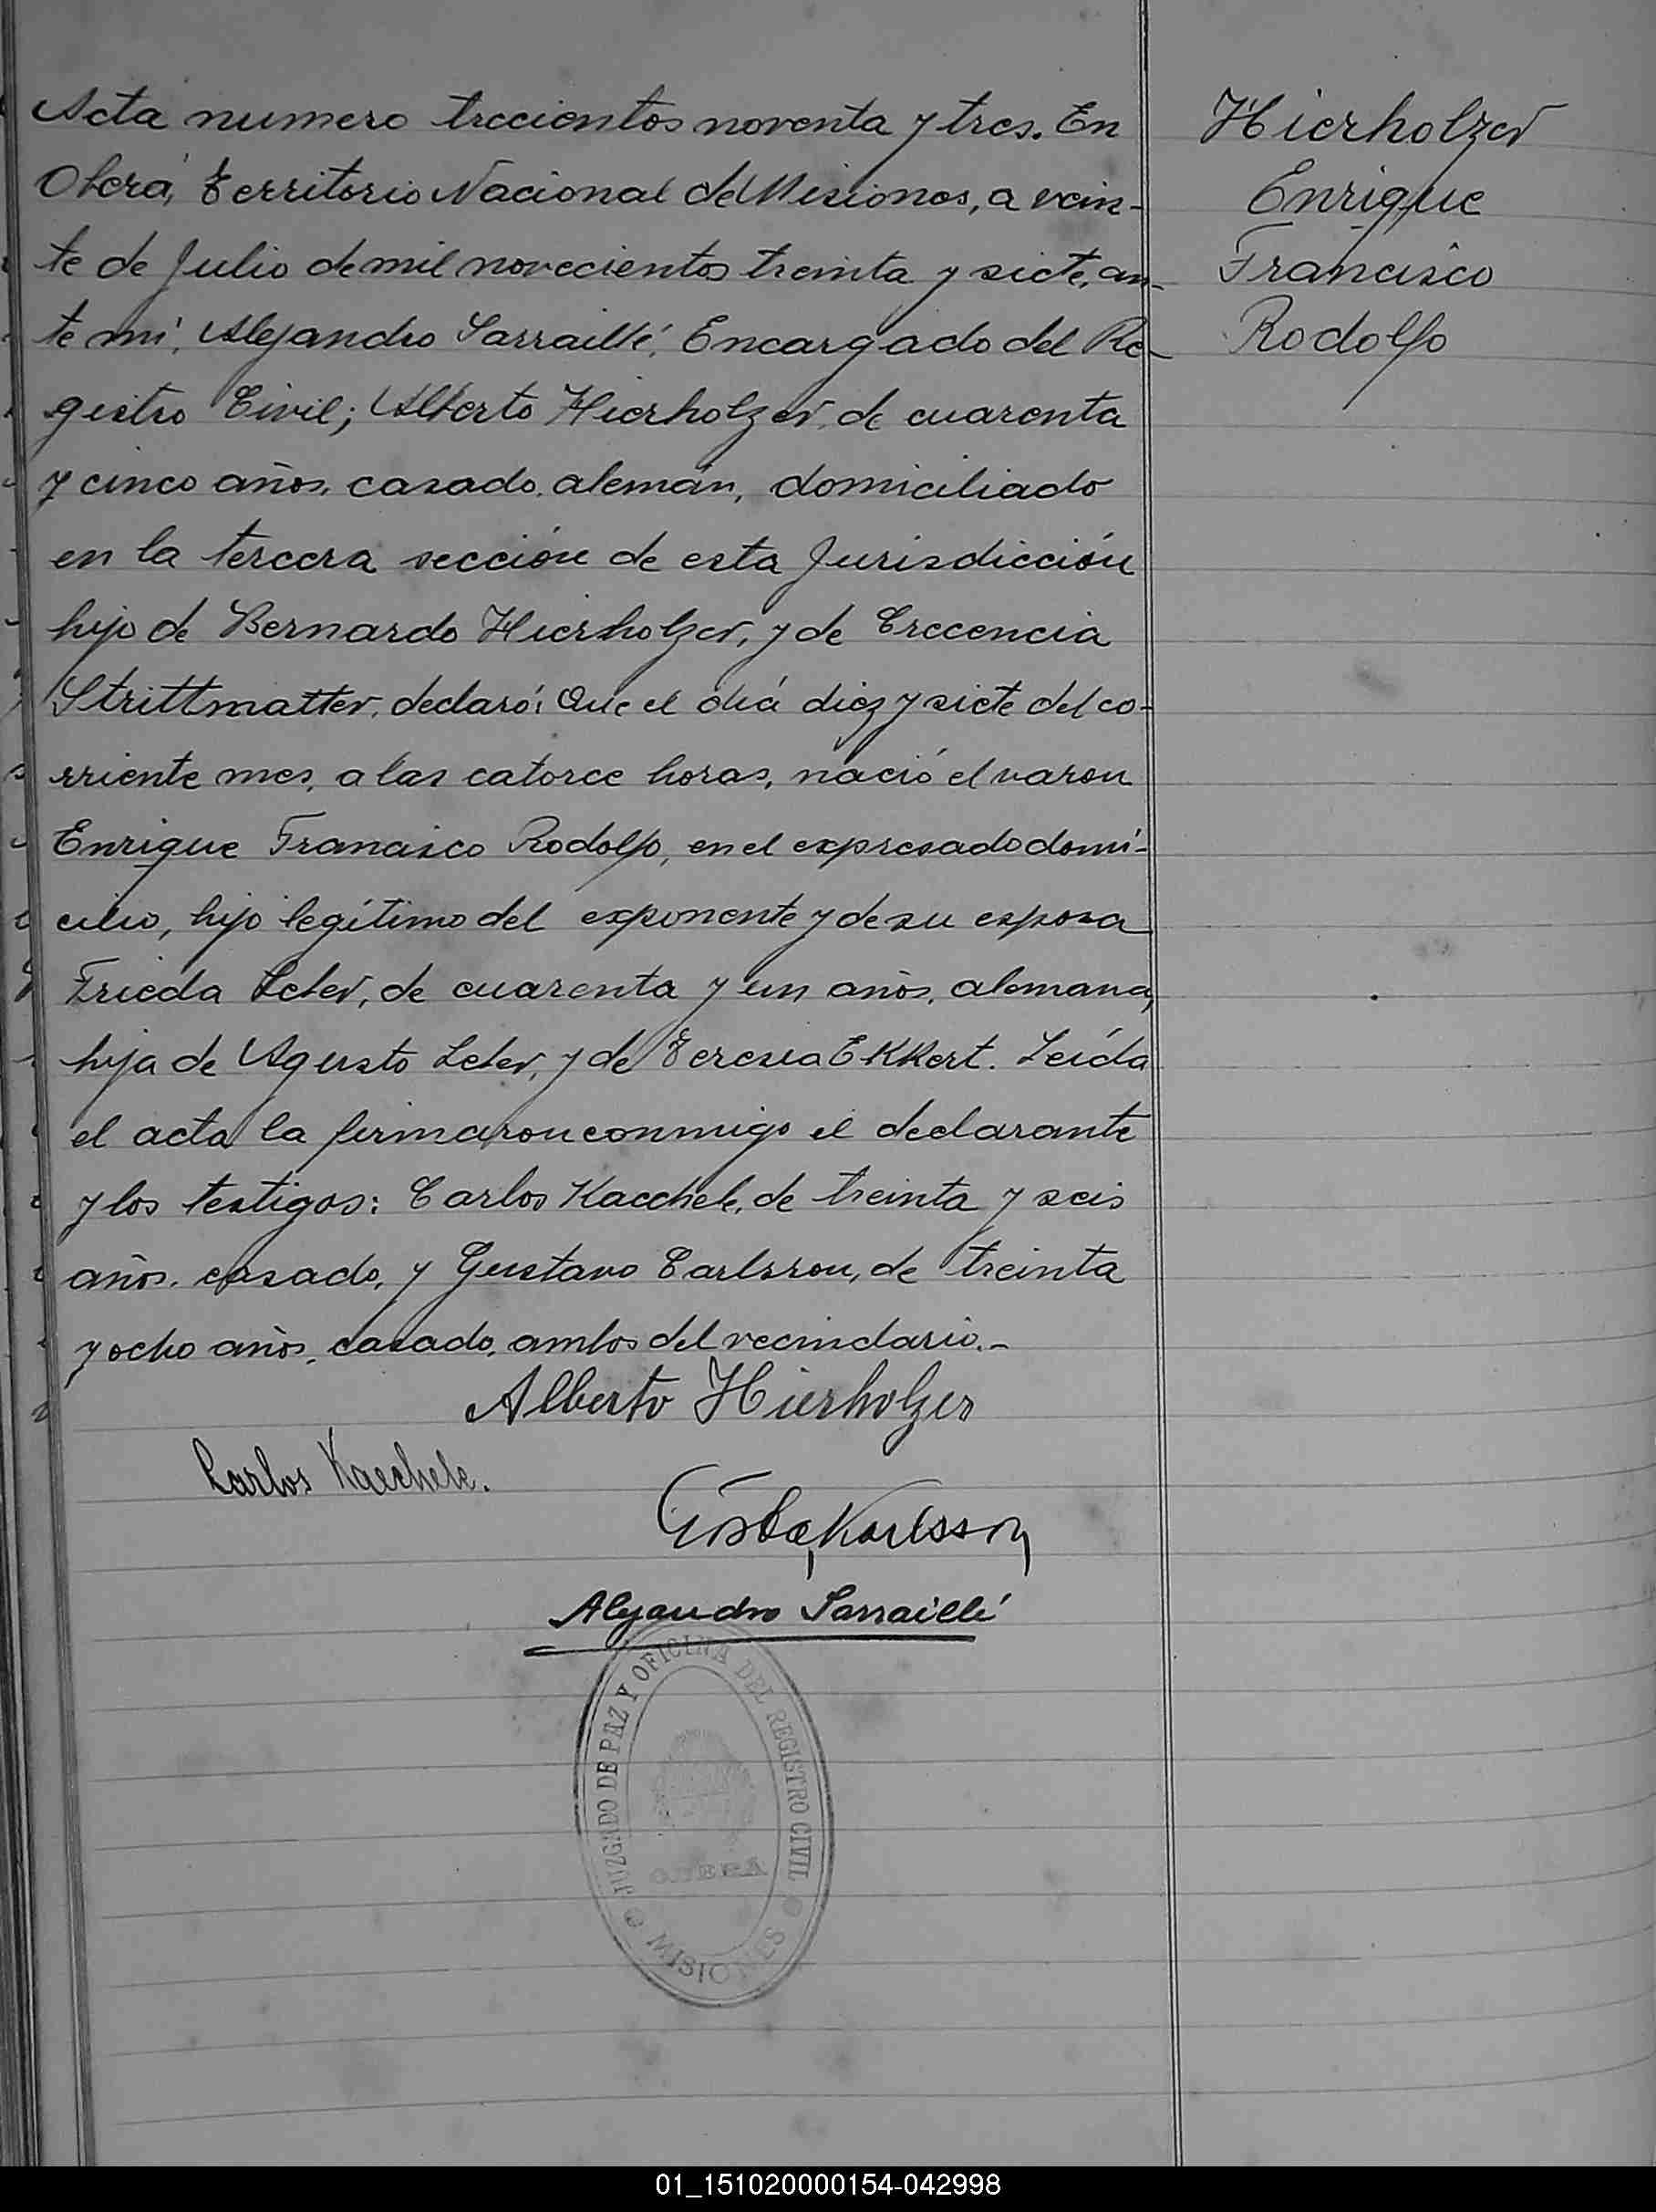 Acta numero trecientos noventa y tres. En
Oberá, Territorio Nacional de Misiones, a vein-
te de Julio de mil novecientos treinta y siete, an-
te mí, Alejandro Sarraillé, Encargado del Re-
gistro Civil; Alberto Hierholzer, de cuarenta
y cinco años, casado, alemán, domiciliado
en la tercera sección de esta Jurisdicción
hijo de Bernardo Hierholzer, y de Crecencia
Strittmatter, declaró: Que el día diez y siete del co-
rriente mes, a las catorce horas, nació el varon
Enrique Francisco Rodolfo, en el expresado domi-
cilio, hijo legítimo del exponente y de su esposa
Frieda , de cuarenta y un años, alemana,
hija de Agusto y de Teresia Ekkert. Leída
el acta la firmaron conmigo el declarante
y los testigos: Carlos Kaechele, de treinta y seis
años, casado, y Gustavo Carlsson, de treinta
y ocho años, casado, ambos del vecindario.-
Hierholzer
Enrique
Francisco
Rodolfo
Alberto Hierholzer
Carlos Kaechele.
Gösta Karlsson
Alejandro Sarraillé
JUZGADO DE PAZ Y OFICINA DEL REGISTRO CIVIL
OBERÁ
MISIONES
01_151020000154-042998